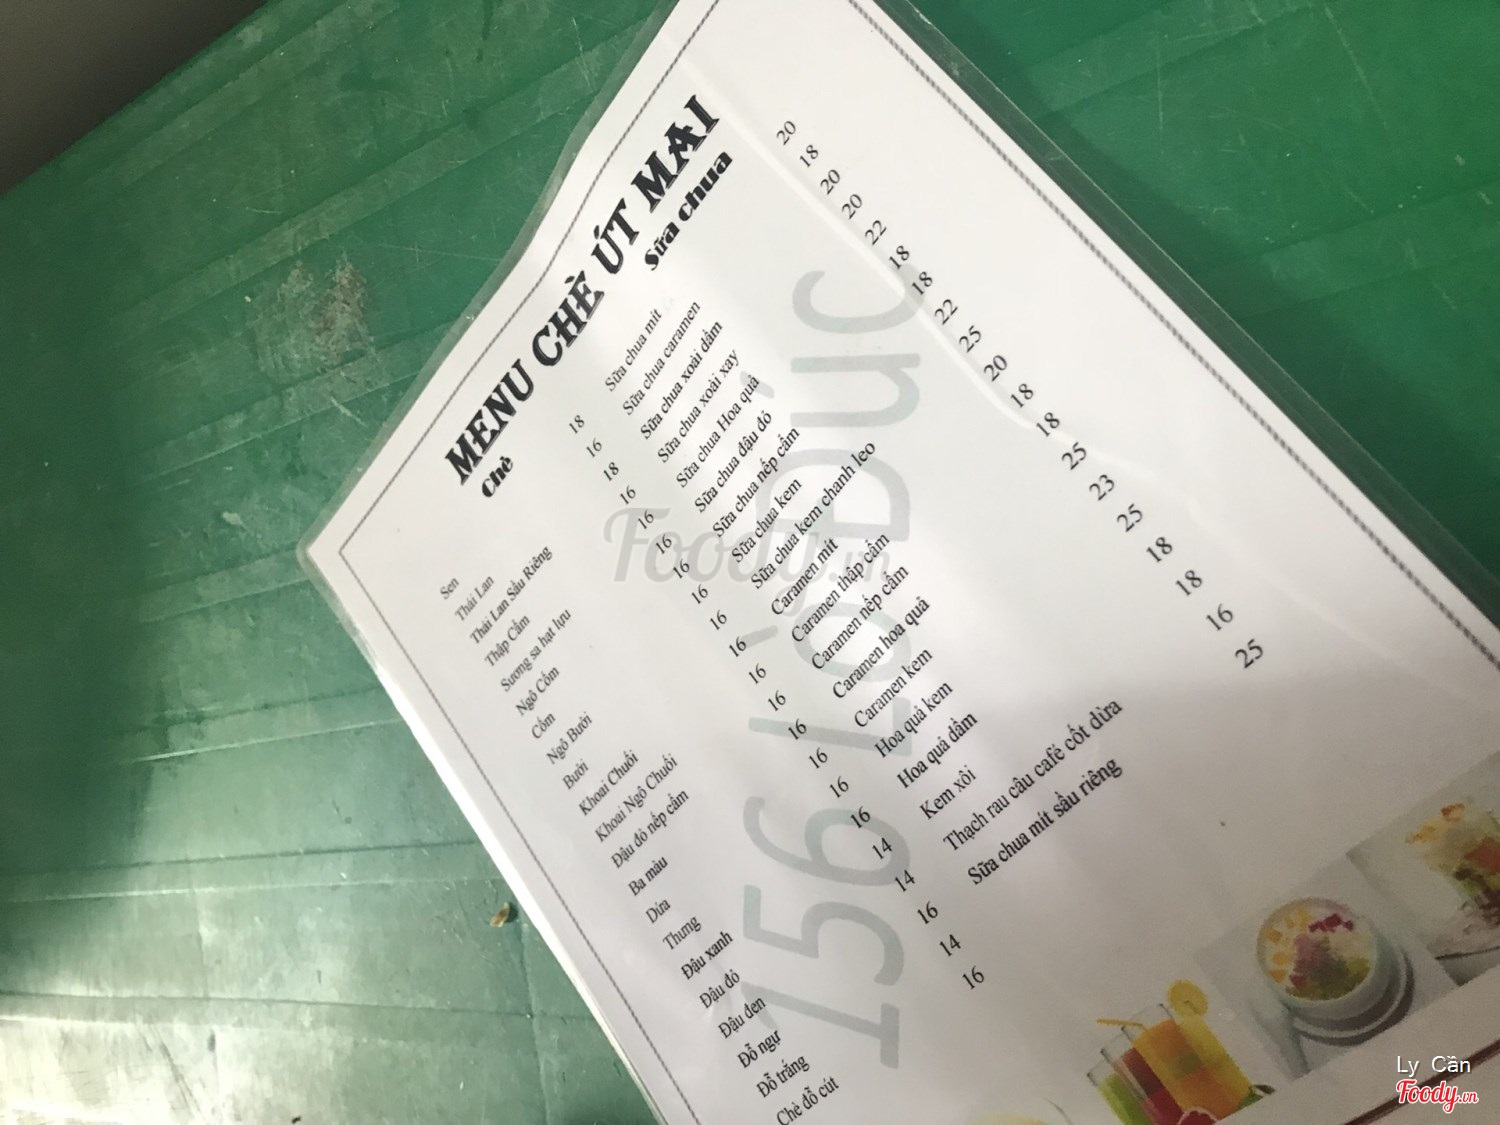 MENU CHÈ ÚT MAI
Chè
Sữa chua
Sen 18 Sữa chua mít 20
Thái Lan 16 Sữa chua caramen 18
Thái Lan Sầu Riêng 18 Sữa chua xoài dầm 20
Thập Cẩm 16 Sữa chua xoài xay 20
Sương sa hạt lựu 16 Sữa chua Hoa quả 22
Ngô Cốm 16 Sữa chua đậu đỏ 18
Cốm 16 Sữa chua nếp cẩm 18
Ngô Bưởi 16 Sữa chua kem 22
Bưởi 16 Sữa chua kem chanh leo 25
Khoai Chuối 16 Caramen mít 20
Khoai Ngô Chuối 16 Caramen thập cẩm 18
Đậu đỏ nếp cẩm 16 Caramen nếp cẩm 18
Ba màu 16 Caramen hoa quả 25
Dừa 16 Caramen kem 23
Thưng 16 Hoa quả kem 25
Đậu xanh 16 Hoa quả dầm 18
Đậu đỏ 14 Kem xôi 18
Đậu đen 14 Thạch rau câu café cốt dừa 16
Đỗ ngự 16 Sữa chua mít sầu riêng 25
Đỗ trắng 14
Chè đỗ cút 16
156 LÒ ĐÚC
Foody.vn
Ly Cần
Foody.vn